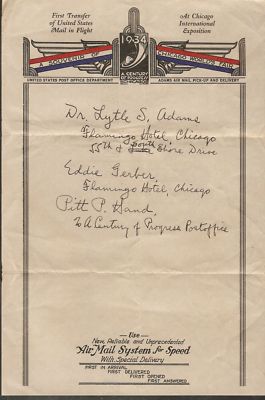 First Transfer
of United States
Mail in Flight
At Chicago
International
Exposition
1934
A CENTURY
OF PROGRESS
A SOUVENIR OF
CHICAGO WORLD'S FAIR
UNITED STATES POST OFFICE DEPARTMENT
ADAMS AIR MAIL PICK-UP AND DELIVERY
Dr. Lytle S. Adams
Flamingo Hotel, Chicago
55th & South Shore Drive
Eddie Gerber,
Flamingo Hotel, Chicago
Pitt P. Hand,
% A Century of Progress Postoffice
Use
New, Reliable and Unprecedented
Air Mail System for Speed
With Special Delivery
FIRST IN ARRIVAL
FIRST DELIVERED
FIRST OPENED
FIRST ANSWERED